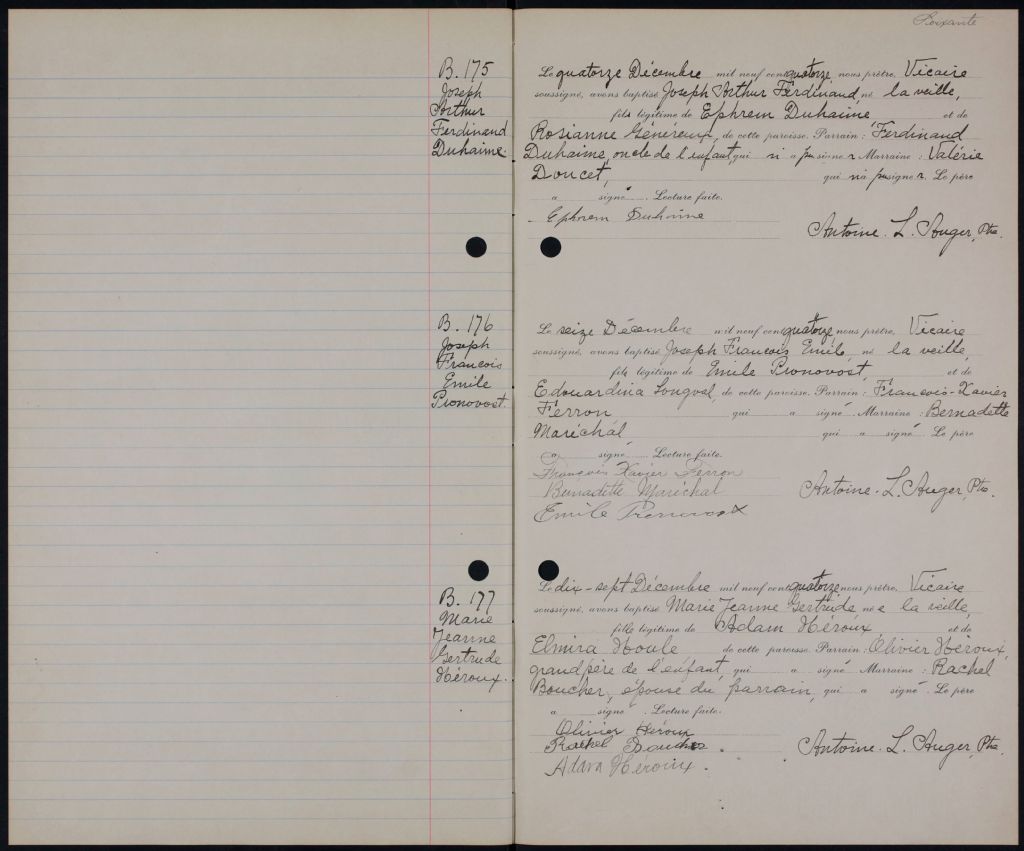 Soixante
B. 175
Joseph
Arthur
Ferdinand
Duhaime.
Le quatorze Décembre mil neuf cent quatorze, nous prêtre, Vicaire
soussigné, avons baptisé Joseph Arthur Ferdinand, né la veille,
fils légitime de Ephrem Duhaime et de
Rosianne Généreux, de cette paroisse. Parrain : Ferdinand
Duhaime, oncle de l'enfant, qui n'a pu signer Marraine : Valérie
Doucet, qui n'a pu signer. Le père
a signé . Lecture faite.
Ephrem Duhaime
Antoine. L. Auger, Ptre.
B. 176
Joseph
Francois
Emile
Pronovost.
Le seize Décembre mil neuf cent quatorze, nous prêtre, Vicaire
soussigné, avons baptisé Joseph Francois Emile, né la veille,
fils légitime de Emile Pronovost, et de
Edouardina Longval, de cette paroisse. Parrain : Francois-Xavier
Ferron qui a signé Marraine : Bernadette
Maréchal qui a signé Le père
a signé Lecture faite.
François Xavier Ferron
Bernadette Maréchal
Antoine. L. Auger, Ptre.
Emile Pronovost
B. 177
Marie
Jeanne
Gertrude
Héroux.
Le dix-sept Décembre mil neuf cent quatorze nous prêtre, Vicaire
soussigné, avons baptisé Marie Jeanne Gertrude née la veille,
fille légitime de Adam Héroux et de
Elmira Houle de cette paroisse. Parrain : Olivier Héroux,
grandpère de l'enfant, qui a signé Marraine : Rachel
Boucher, épouse du parrain, qui a signé. Le père
a signé . Lecture faite.
Olivier Héroux
Rachel Boucher
Antoine. L. Auger, Ptre.
Adam Héroux.